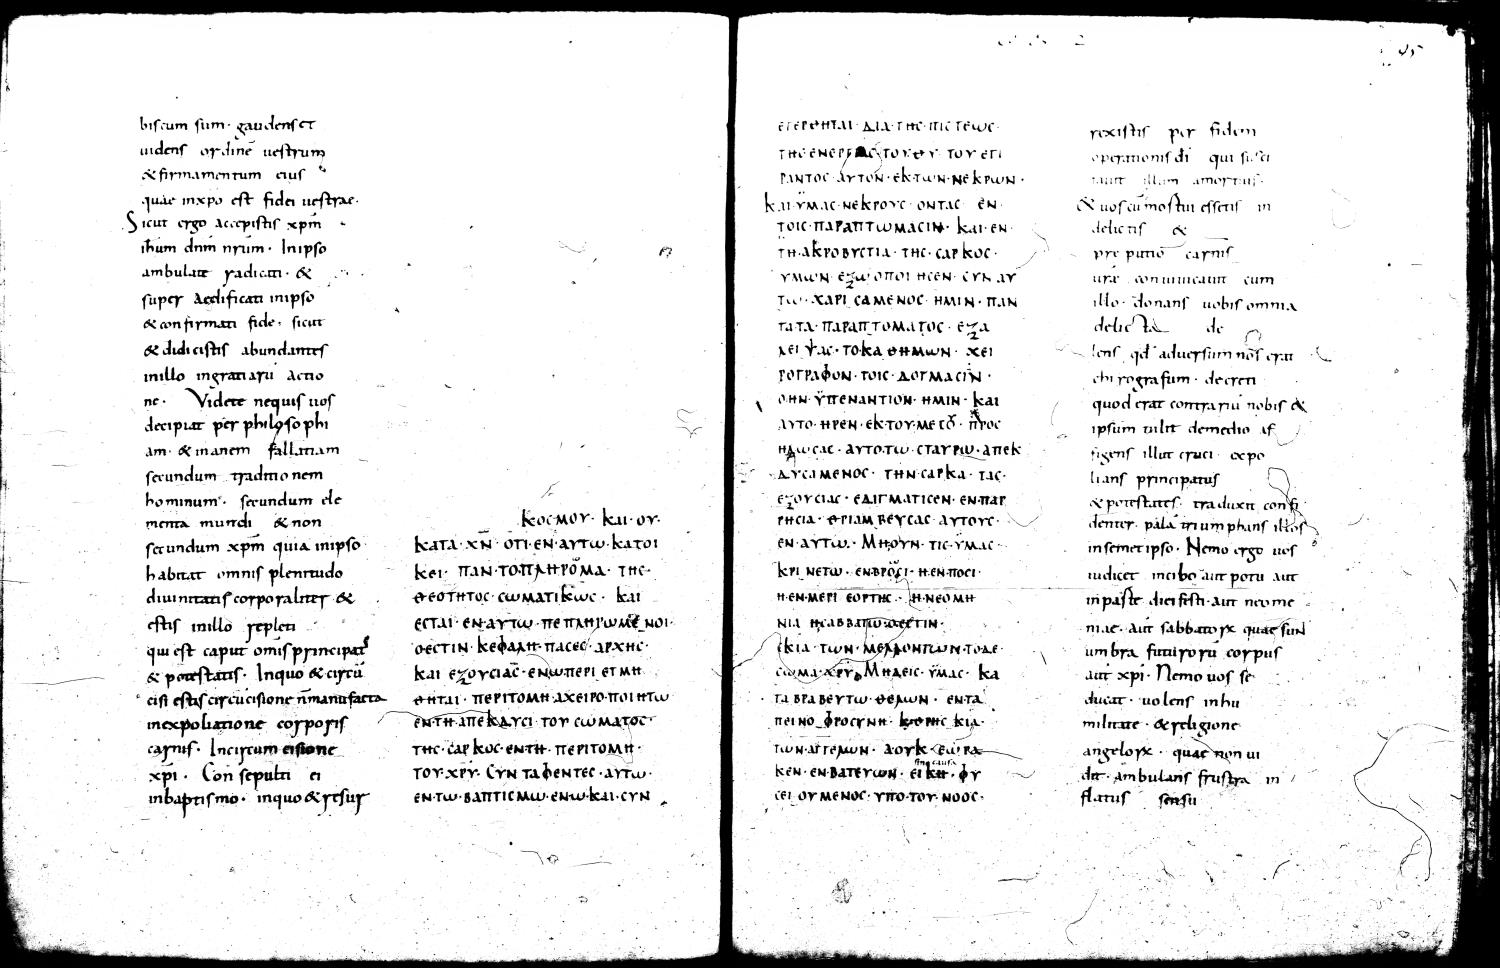 biscum sum· gaudens et
uidens ordinē uestrum
& firmamentum eius
quae inxpo est fidei uestrae·
Sicut ergo accepistis xpm̄
ihum dnm̄ nrūm· Inipso
ambulate radicati· &
super aedificati inipso
& confirmati fide· sicut
& didicistis abundantes
inillo ingratiarū actio
ne· Videte nequis uos
decipiat per philosophi
am· & inanem fallatiam
secundum traditionem
hominum· secundum ele
menta mundi & non
secundum xpm̄ quia inipso
habitat omnis plenitudo
diuinitatis corporaliter &
estis inillo repleti
qui est caput omīs principat
& potestatis· Inquo & circū
cisi estis circūcisione n̄manufacta
inexpoliatione corporis
carnis· Incircumcisione
xp̄i· Con sepulti ei
inbaptismo· inquo & resur
ΚΟCΜΟΥ· ΚΑΙ·ΟΥ·
ΚΑΤΑ·ΧΝ̄· ΟΤΙ·ΕΝ·ΑΥΤΩ·ΚΑΤΟΙ
ΚΕΙ· ΠΑΝ·ΤΟ·ΠΛΗΡΟΜΑ· ΤΗC·
ΘΕΟΤΗΤΟC·CΩΜΑΤΙΚΩC· ΚΑΙ
ΕCΤΑΙ·ΕΝ·ΑΥΤΩ·ΠΕΠΛΗΡΩΜΕΝΟΙ·
ΟΕCΤΙΝ·ΚΕΦΑΛΗ·ΠΑCΕC·ΑΡΧΗC·
ΚΑΙ ΕΖΟΥCΙΑC· ΕΝΩ·ΠΕΡΙΕΤΜΗ
ΘΗΤΑΙ· ΠΕΡΙΤΟΜΗ·ΑΧΕΙΡΟ·ΠΟΙΗΤΩ·
ΕΝ·ΤΗ·ΑΠΕΚΔΥCΙ ΤΟΥ CΩΜΑΤΟC·
ΤΗC·CΑΡΚΟC·ΕΝ·ΤΗ· ΠΕΡΙΤΟΜΗ·
ΤΟΥ·ΧΡΥ· CΥΝ ΤΑΦΕΝΤΕC·ΑΥΤΩ·
ΕΝ·ΤΩ·ΒΑΠΤΙCΜΩ·ΕΝ·Ω·ΚΑΙ·CΥΝ
ΕΓΕΡΘΗΤΑΙ· ΔΙΑ·ΤΗC·ΠΙCΤΕΩC·
ΤΗC·ΕΝΕΡΓΑC·ΤΟΥ·ΘΥ· ΤΟΥ ΕΓΙ
ΡΑΝΤΟC·ΑΥΤΟΝ·ΕΚ·ΤΩΝ·ΝΕΚΡΩΝ·
ΚΑΙ·ΥΜΑC·ΝΕΚΡΟΥC· ΟΝΤΑC· ΕΝ·
ΤΟΙC·ΠΑΡΑΠΤΩΜΑCΙΝ· ΚΑΙ·ΕΝ·
ΤΗ·ΑΚΡΟΒΥCΤΙΑ· ΤΗC· CΑΡΚΟC·
ΥΜΩΝ·ΕΖΩΟΠΟΙΗCΕΝ· CΥΝ ΑΥ
ΤΩ· ΧΑΡΙCΑΜΕΝΟC· ΗΜΙΝ· ΠΑΝ
ΤΑ·ΤΑ·ΠΑΡΑΠΤΟΜΑΤΟC· ΕΖΑ
ΛΕΙΨΑC· ΤΟ·ΚΑΘΗΜΩΝ· ΧΕΙ
ΡΟΓΡΑΦΟΝ·ΤΟΙC·ΔΟΓΜΑCΙΝ·
Ο·ΗΝ·ΥΠΕΝΑΝΤΙΟΝ·ΗΜΙΝ· ΚΑΙ
ΑΥΤΟ·ΗΡΕΝ·ΕΚ·ΤΟΥ·ΜΕCΟΥ· ΠΡΟC
ΗΛΩCΑC· ΑΥΤΟ·ΤΩ·CΤΑΥΡΩ·ΑΠΕΚ
ΔΥCΑΜΕΝΟC· ΤΗΝ·CΑΡΚΑ· ΤΑC·
ΕΖΟΥCΙΑC· ΕΔΙΓΜΑΤΙCΕΝ· ΕΝ·ΠΑΡ
ΡΗCΙΑ· ΘΡΙΑΜΒΕΥCΑC· ΑΥΤΟΥC·
ΕΝ·ΑΥΤΩ· ΜΗ·ΟΥΝ· ΤΙC·ΥΜΑC·
ΚΡΙΝΕΤΩ· ΕΝ·ΒΡΟCΙ· Η·ΕΝ·ΠΟCΙ·
Η·ΕΝ·ΜΕΡΙ ΕΟΡΤΗC· Η·ΝΕΟΜΗ
ΝΙΑ
CΚΙΑ· ΤΩΝ· ΜΕΛΛΟΝΤΩΝ·ΤΟΔΕ·
CΩΜΑ·ΧΡΥ· ΜΗΔΕΙC·ΥΜΑC· ΚΑ
ΤΑΒΡΑΒΕΥΤΩ· ΘΕΛΩΝ· ΕΝ·ΤΑ
ΠΕΙΝΟΦΡΟCΥΝΗ·
ΤΩΝ·ΑΓΓΕΛΩΝ· Α·ΟΥΚ·ΕΩΡΑ
ΚΕΝ·ΕΝΒΑΤΕΥΩΝ· ΕΙΚΗ·ΦΥ
CΕΙΟΥΜΕΝΟC·ΥΠΟ·ΤΟΥ·ΝΟΟC·
rexistis per fidem
operationis di qui susci
tauit illum amortuis·
& uos cū mortui essetis in
delictis &
preputio carnis
urae conuiuicauit cum
illo· donans uobis omnia
delicta de
lens qd aduersum nos erat
chirografum· decreti
quod erat contrariū nobis &
ipsum tulit demedio af
figens illut cruci expo
lians principatus
& potestates· traduxit confi
denter palā triumphans illos
insemet ipso· Nemo ergo uos
iudicet incibo aut potu aut
inparte diei festi·aut neome
niae· aut sabbatorx quae sun
umbra futurorū corpus
aut xpi· Nemo uos se
ducat· uolens inhu
militate· & religione
angelorx· quae non ui
dit· ambulans frustra in
flatus sensu